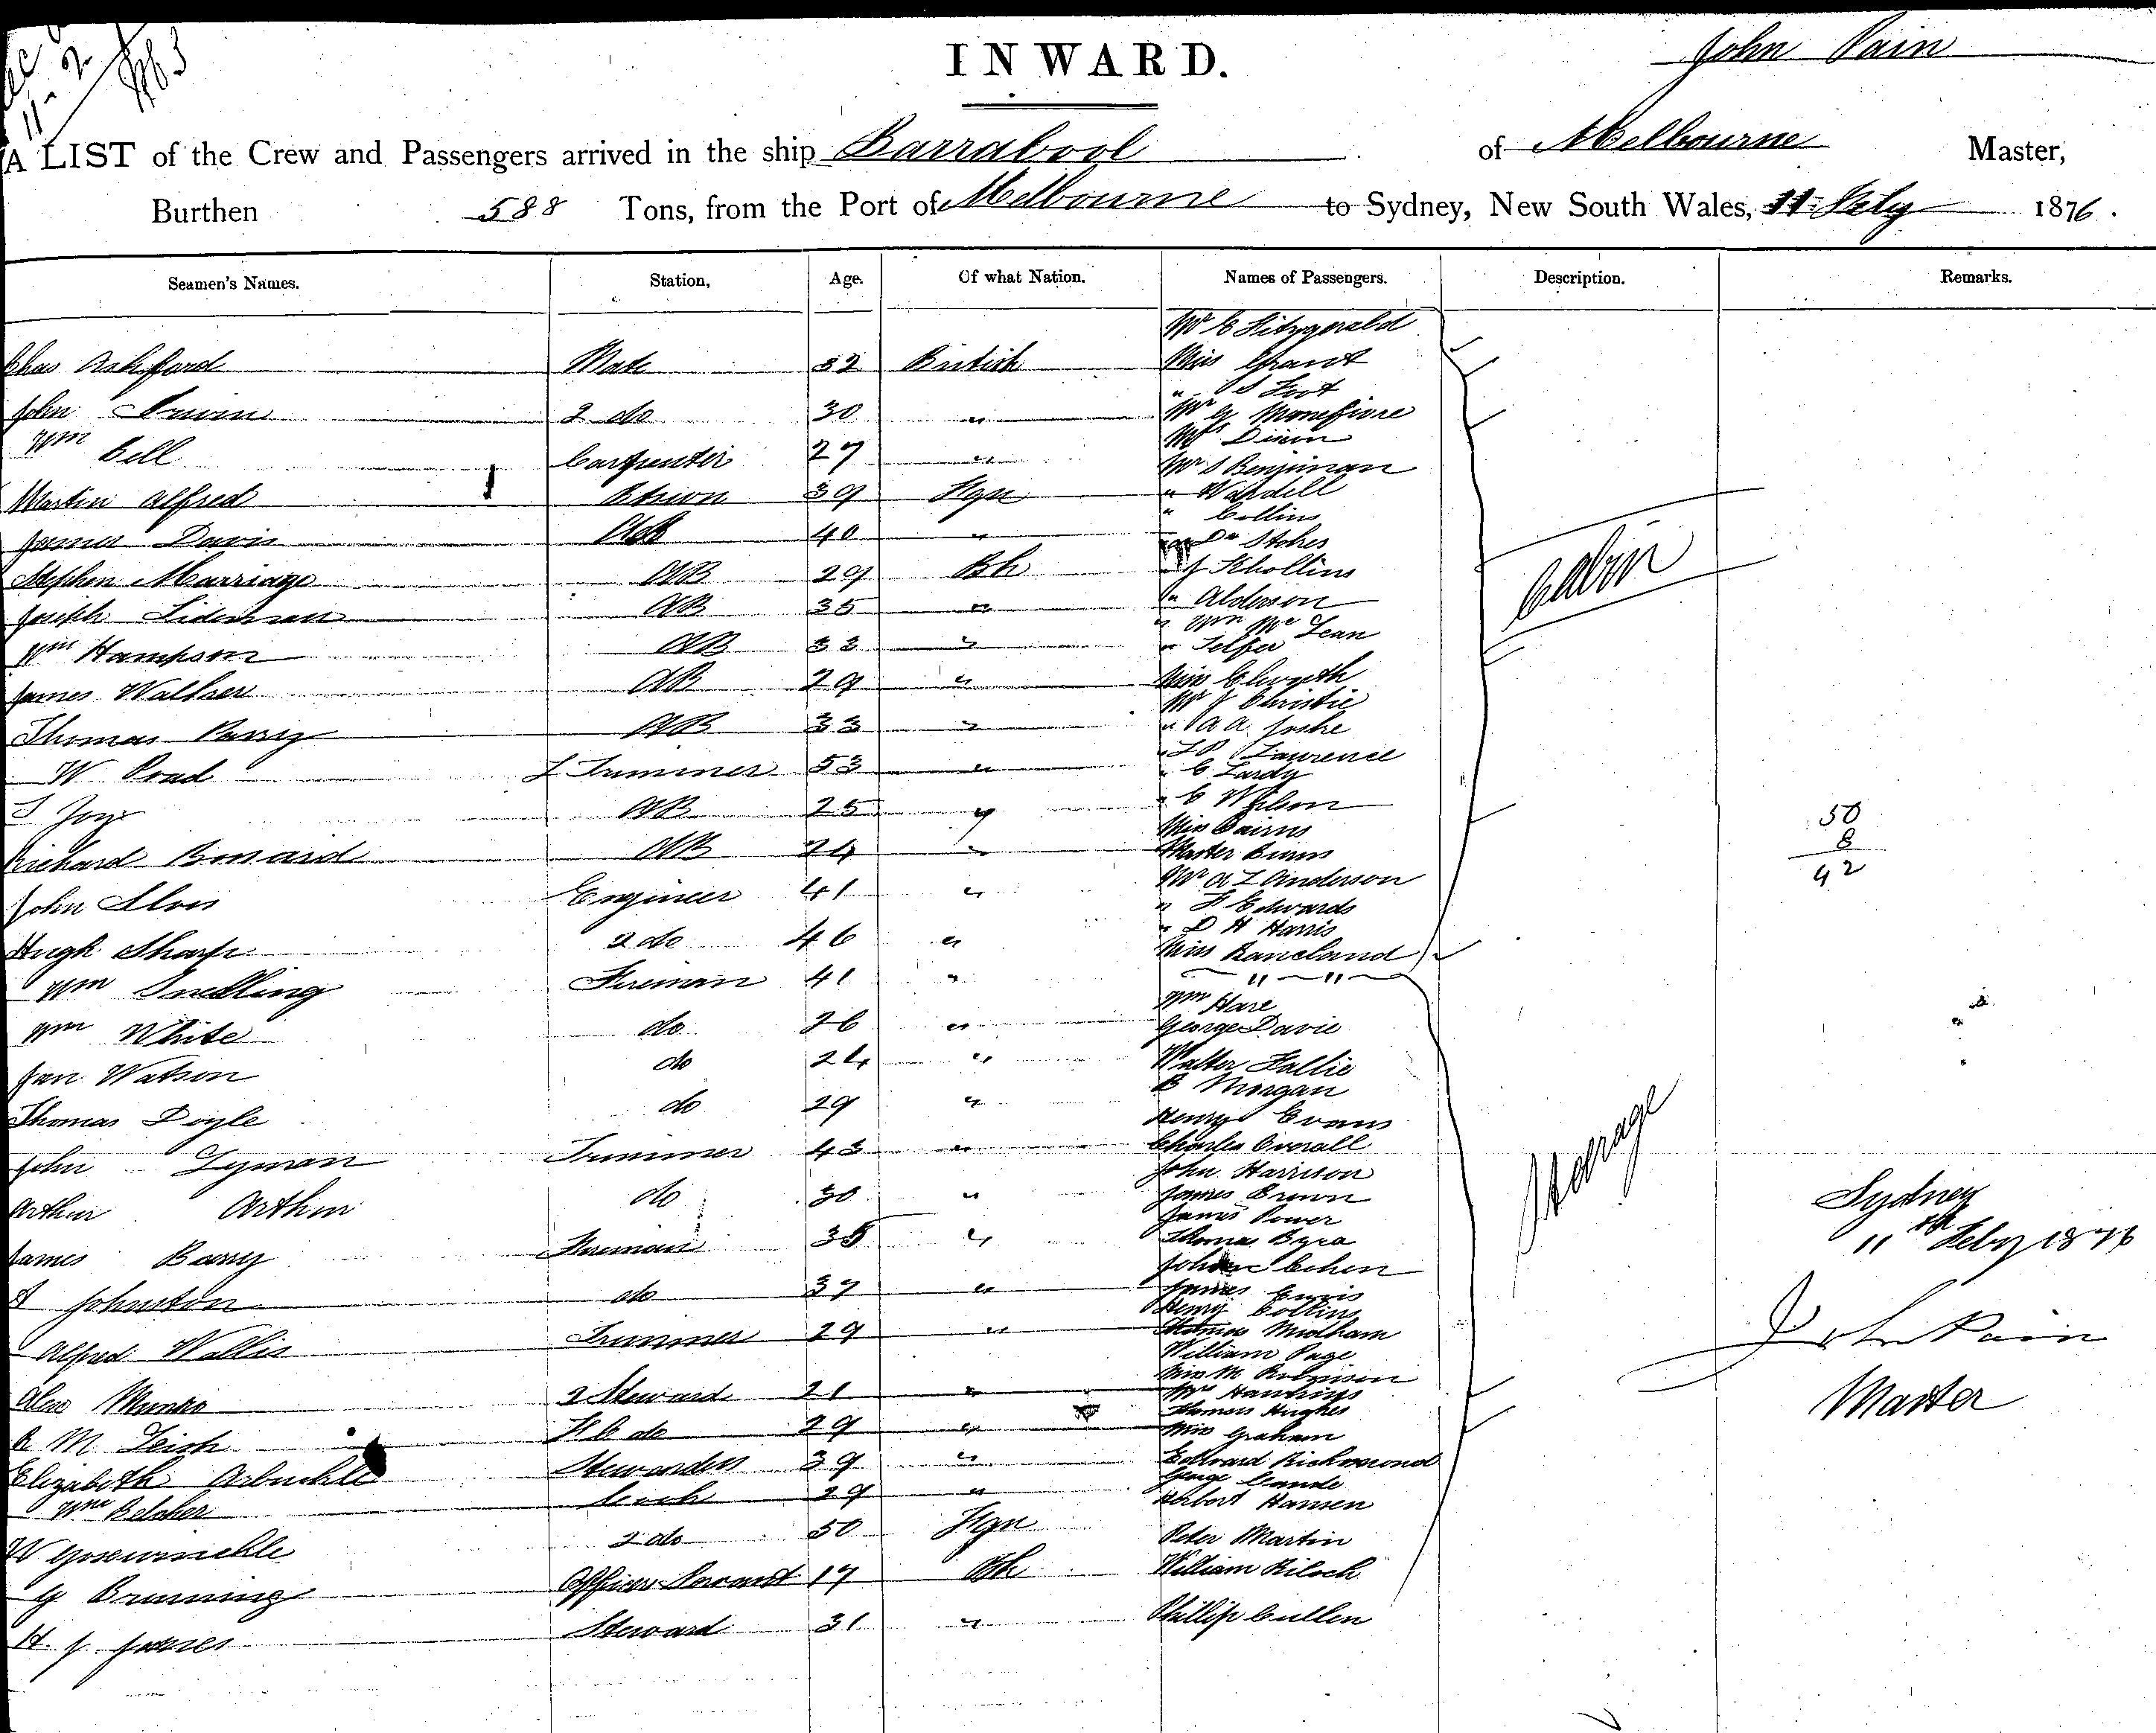 INWARD.
John Pain
A LIST of the Crew and Passengers arrived in the ship Barrabool of Melbourne Master,
Burthen 588 Tons, from the Port of Melbourne to Sydney, New South Wales, 11 Feby 1876.
Seamen's Names. Station, Age. Of what Nation. Names of Passengers. Description. Remarks.
Mr C Fitzgerald
Chas Ashford Mate 52 British Miss Grant
" S Foot
John 2 do 30 " Mr G Monefiore
Mrs Dixon
Wm Bell Carpenter 27 " Mr S Benjiman
Martin Alfred 39 Fgn " Wardell
" Collins
James Davis AB 40 " " Dr Stokes
Stephen Marriage AB 29 Bh " J Khollins
Joseph AB 35 " " Alderson
" Wm Mc Lean
Wm Hampson AB 33 " " Telfer
Cabin
James Walker AB 29 " Miss
Mr J Christie
Thomas Parry AB 33 " " A A Joske
" Lawrence
W Poad Trimmer 53 " " C Lardy
J Joy AB 25 " " C Wilson
50
Miss Cairns
8
Richard AB 24 " Master
42
Mr A L Anderson
John Engineer 41 " " F Edwards
" D H Harris
Hugh Sharp 2 do 46 " Miss
Wm Snelling Fireman 41 "
Wm Hare
Wm White do 26 " George Davie
Jan Watson do 24 " Walter
B Morgan
Thomas Doyle do 29 " Henry Evans
Charles Overall
John Lyman Trimmer 43 " John Harrison
Steerage
Arthur Arthur do 30 " James Brown
James Power
Sydney
James Barry Fireman 35 " Thomas
11th Feby 1876
John Cohen
A Johnston do 37 " James
Henry Collins
John Pain
Alfred Wallis Trimmer 29 " Thomas Midham
William Page
Miss M Robinson
Master
Alex Munro 2 Steward 21 " Mrs Hawkins
Thomas Hughes
R M Leish F C do 29 " Miss Graham
Elizabeth Arbuckle Stewardess 39 " Edward Richmond
George
Wm Belcher Cook 29 " Herbert Hansen
W 2 do 50 Fgn Peter Martin
G Brunning Officers Servant 17 Bh William Kiloch
H. J. James Steward 31 " Phillip Cullen